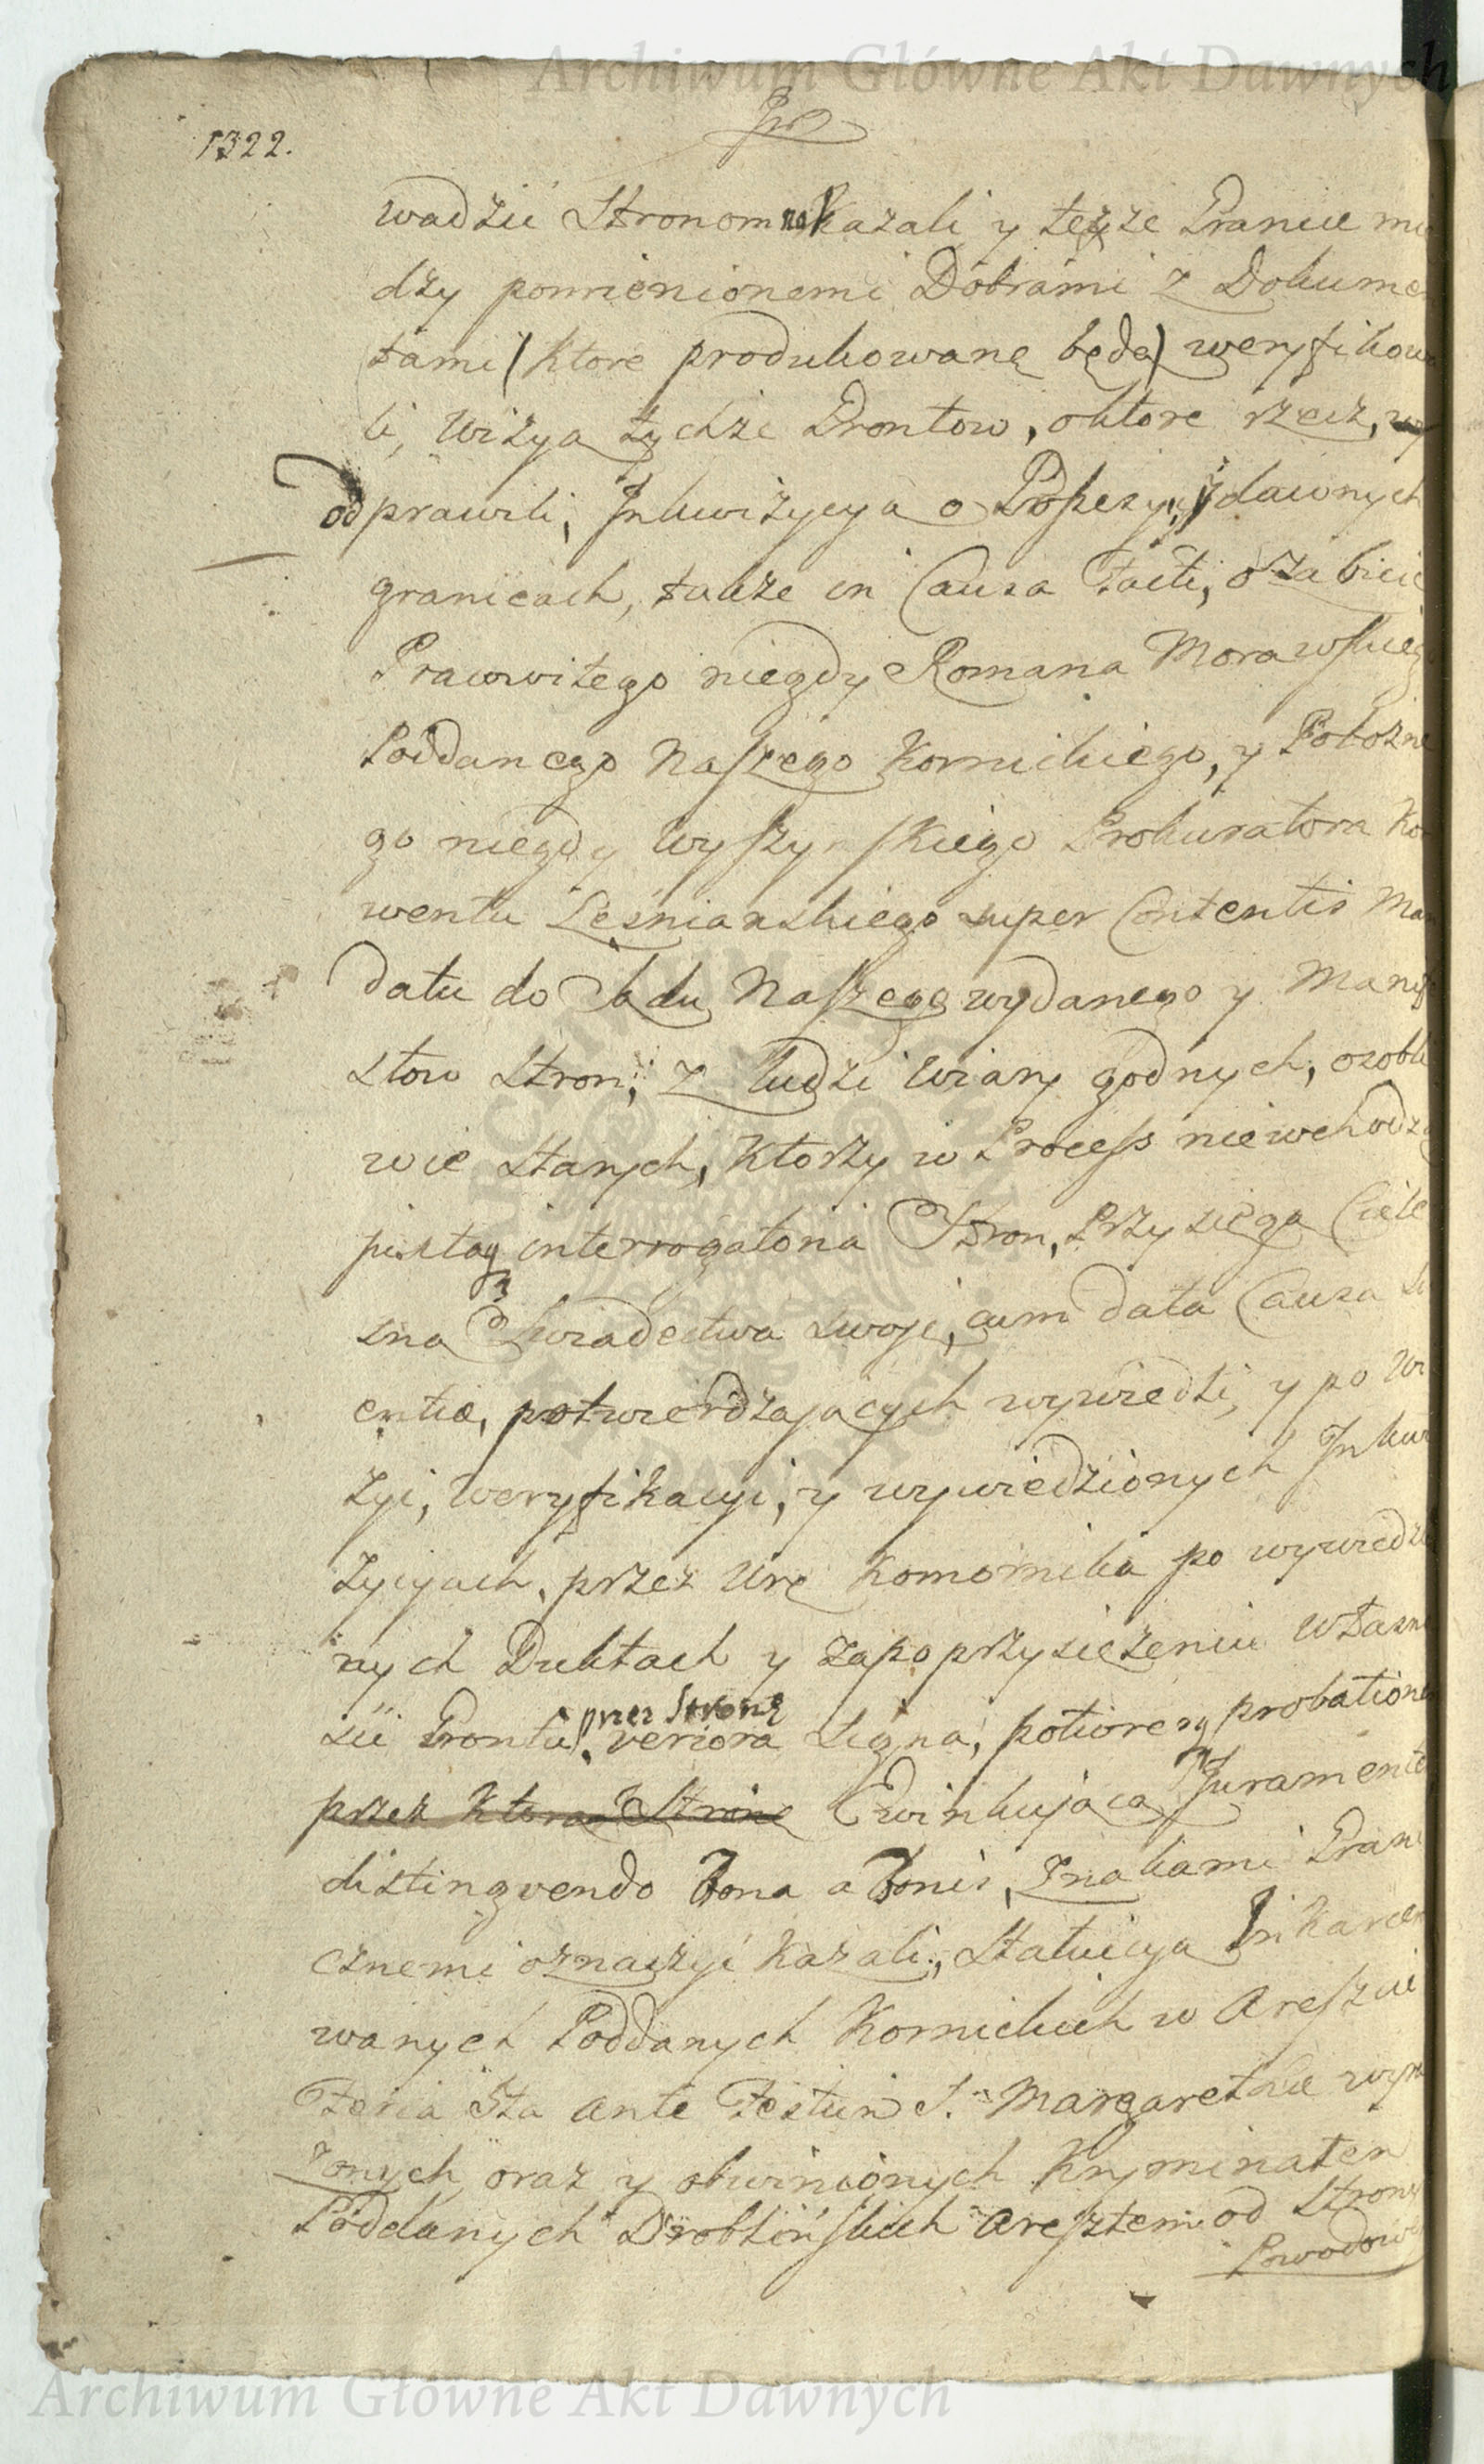 Archiwum Główne Akt Dawnych
1322.
wadzić Stronom nakazali y teyże Granice mie
dzy pomienionemi Dobrami z Dokumen
tami (ktore produkowane będą) weryfikowa
li, Wizya tychże Grontow, o ktore rzecz,
odprawili, Inkwizycya o Possesyi, y dawnych
granicach, także in Causa Facti, o zabicie
Pracowitego niegdy Romana Morawskiego
Poddanego Naszego Kornickiego, y Pobożne
go niegdy Wyszynskiego Prokuratora Kon
wentu Leśnianskiego super Contentis Man
datu do Sądu Naszego wydanego y Manife
stow Stron, z ludzi wiary godnych, osobli
wie Starych, ktorzy w Process niewchodzą
juxta interrogatoria Stron, Przysięgą Ciele
sną Swiadectwa swoje, cum data Causa Sci
entiæ, potwierdzających wywiedli, y po Wi
zyi, Weryfikacyi, y wywiedzionych Inkwi
zycyach, przez Ur. Komornika po wywiedzio
nych Duktach y zapoprzysiężeniu własno
sci Grontu, przez Stronę veriora Signa, potiores probationes
przez ktorą Stronę Ewinkującą Juramento
distingvendo Bona a Bonis, Znakami Grani
cznemi oznaczyć kazali, Statuicya Inkarcero
wanych Poddanych Kornickich w Areszcie
Feria 5ta ante Festum S. Margarethæ wyra
żonych oraz y obwinionych Kryminałem
Poddanych Droblińskich Aresztem od Strony
Powodowey
Archiwum Główne Akt Dawnych